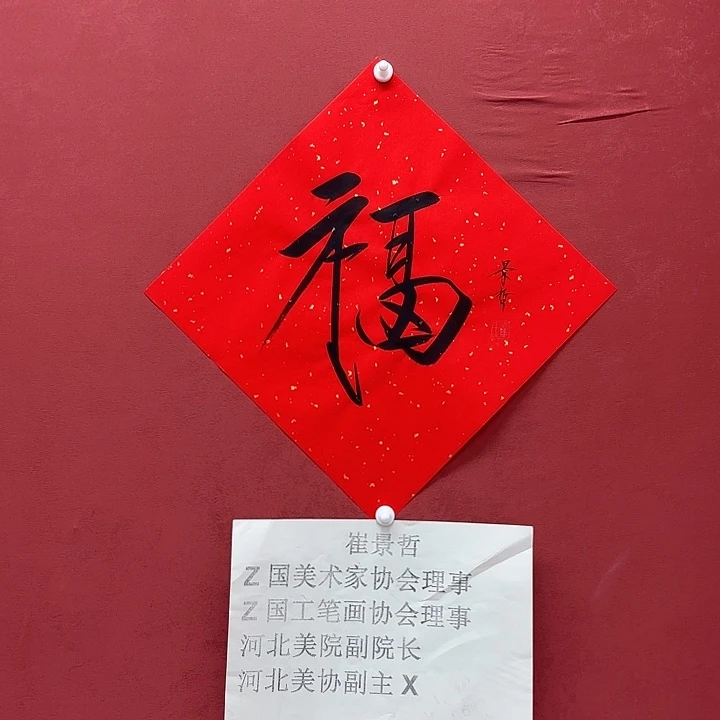 福
景哲
崔景哲
Z国美术家协会理事
Z国工笔画协会理事
河北美院副院长
河北美协副主X